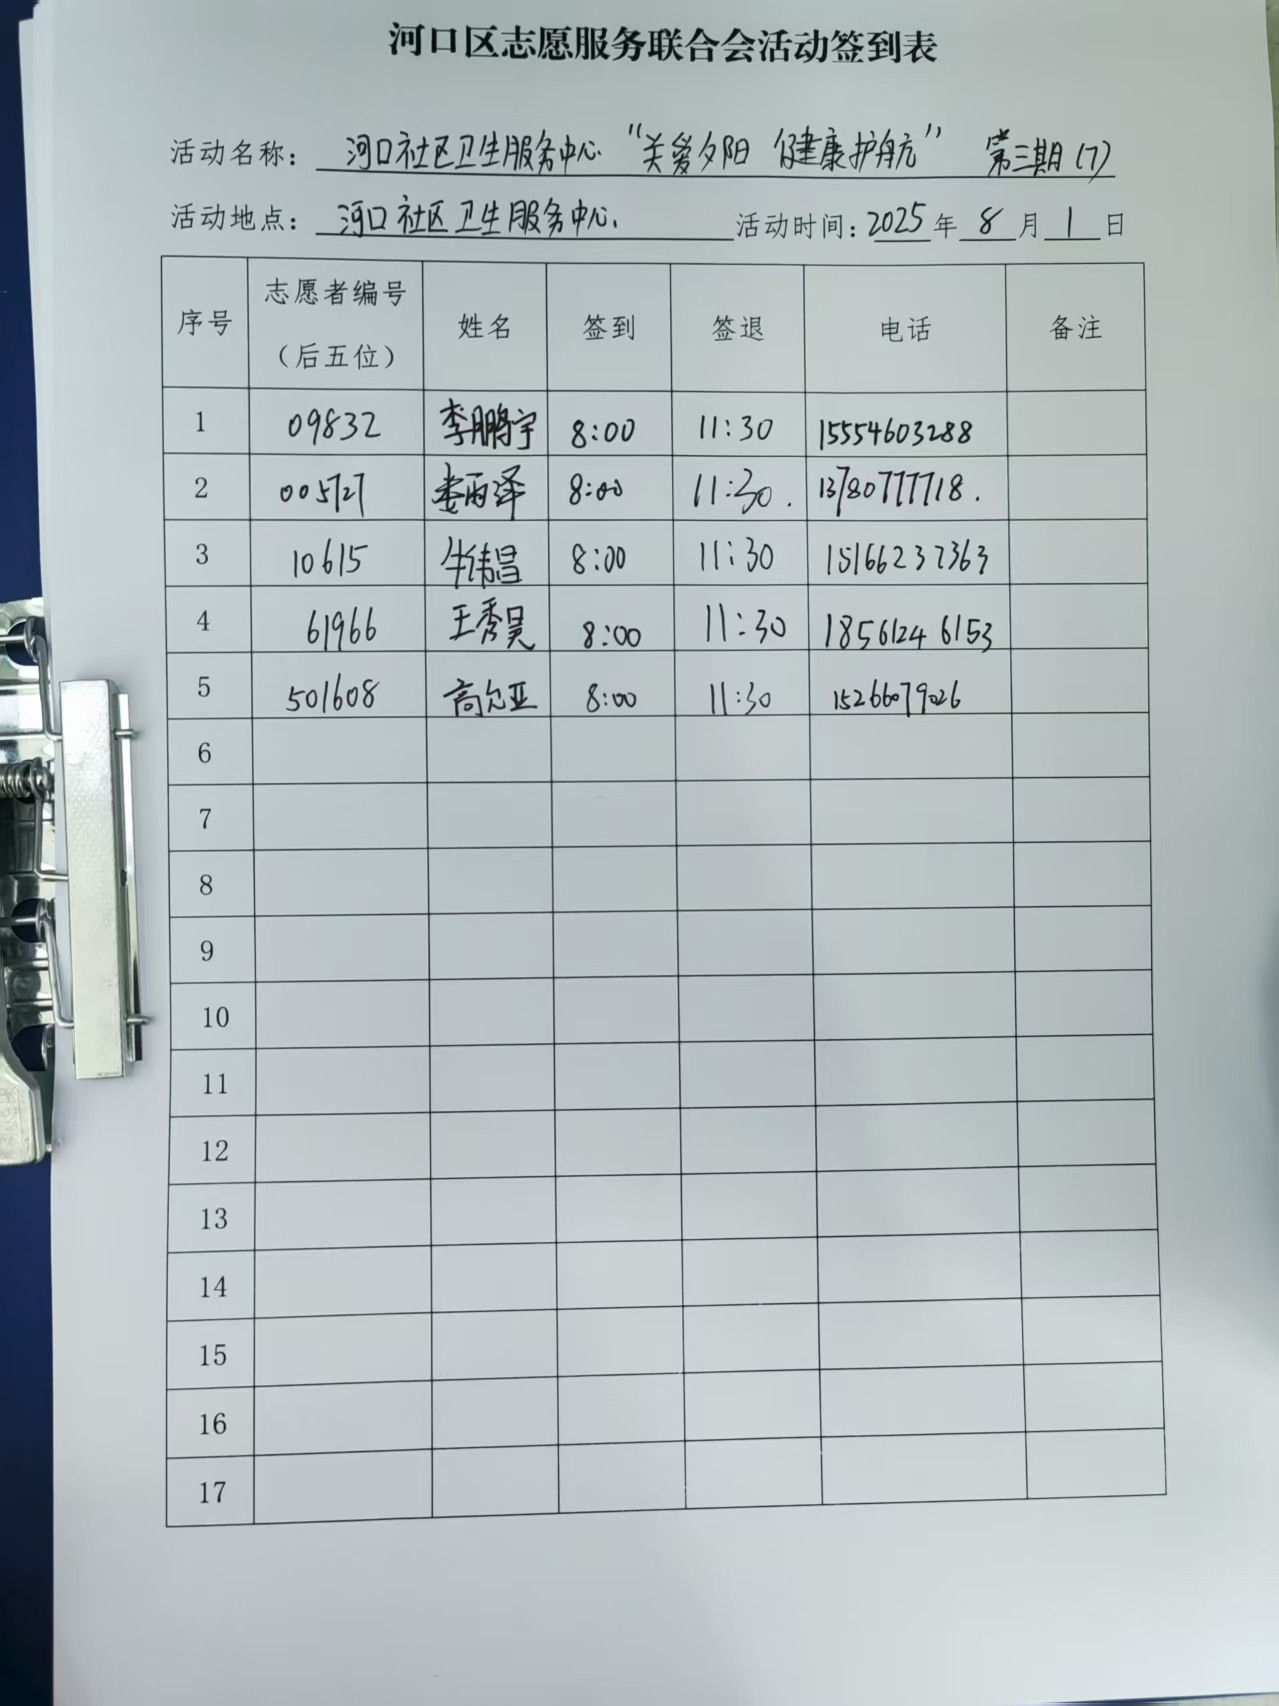 河口区志愿服务联合会活动签到表
活动名称： 河口社区卫生服务中心 “关爱夕阳 健康护航” 第三期(7)
活动地点： 河口社区卫生服务中心. 活动时间：2025年8月1日
序号 志愿者编号（后五位） 姓名 签到 签退 电话 备注
1 09832 李鹏宇 8:00 11:30 15554603288
2 005727 娄雨泽 8:00 11:30. 13780777718.
3 10615 牛伟昌 8:00 11:30 15166232363
4 61966 王秀昊 8:00 11:30 18561246153
5 501608 高尔亚 8:00 11:30 15266079026
6
7
8
9
10
11
12
13
14
15
16
17